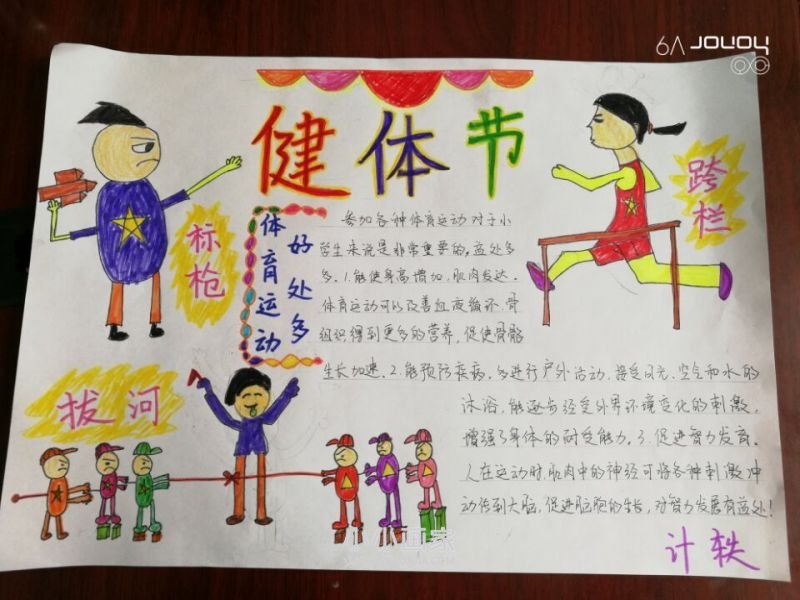 6Λ JOYOY
健体节
跨栏
标枪
体育运动
好处多
参加各种体育运动对于小
学生来说是非常重要的。益处多
多。1.能使身高增加，肌肉发达。
体育运动可以改善血液循环，骨
组织得到更多的营养，促使骨骼
生长加速。2.能预防疾病。多进行户外活动，接受日光、空气和水的
沐浴，能逐步经受外界环境变化的刺激，
增强了身体的耐受能力。3.促进智力发育。
人在运动时，肌肉中的神经可将各种刺激冲
动传到大脑，促进脑胞的生长，对智力发展有益处！
拔河
计轶